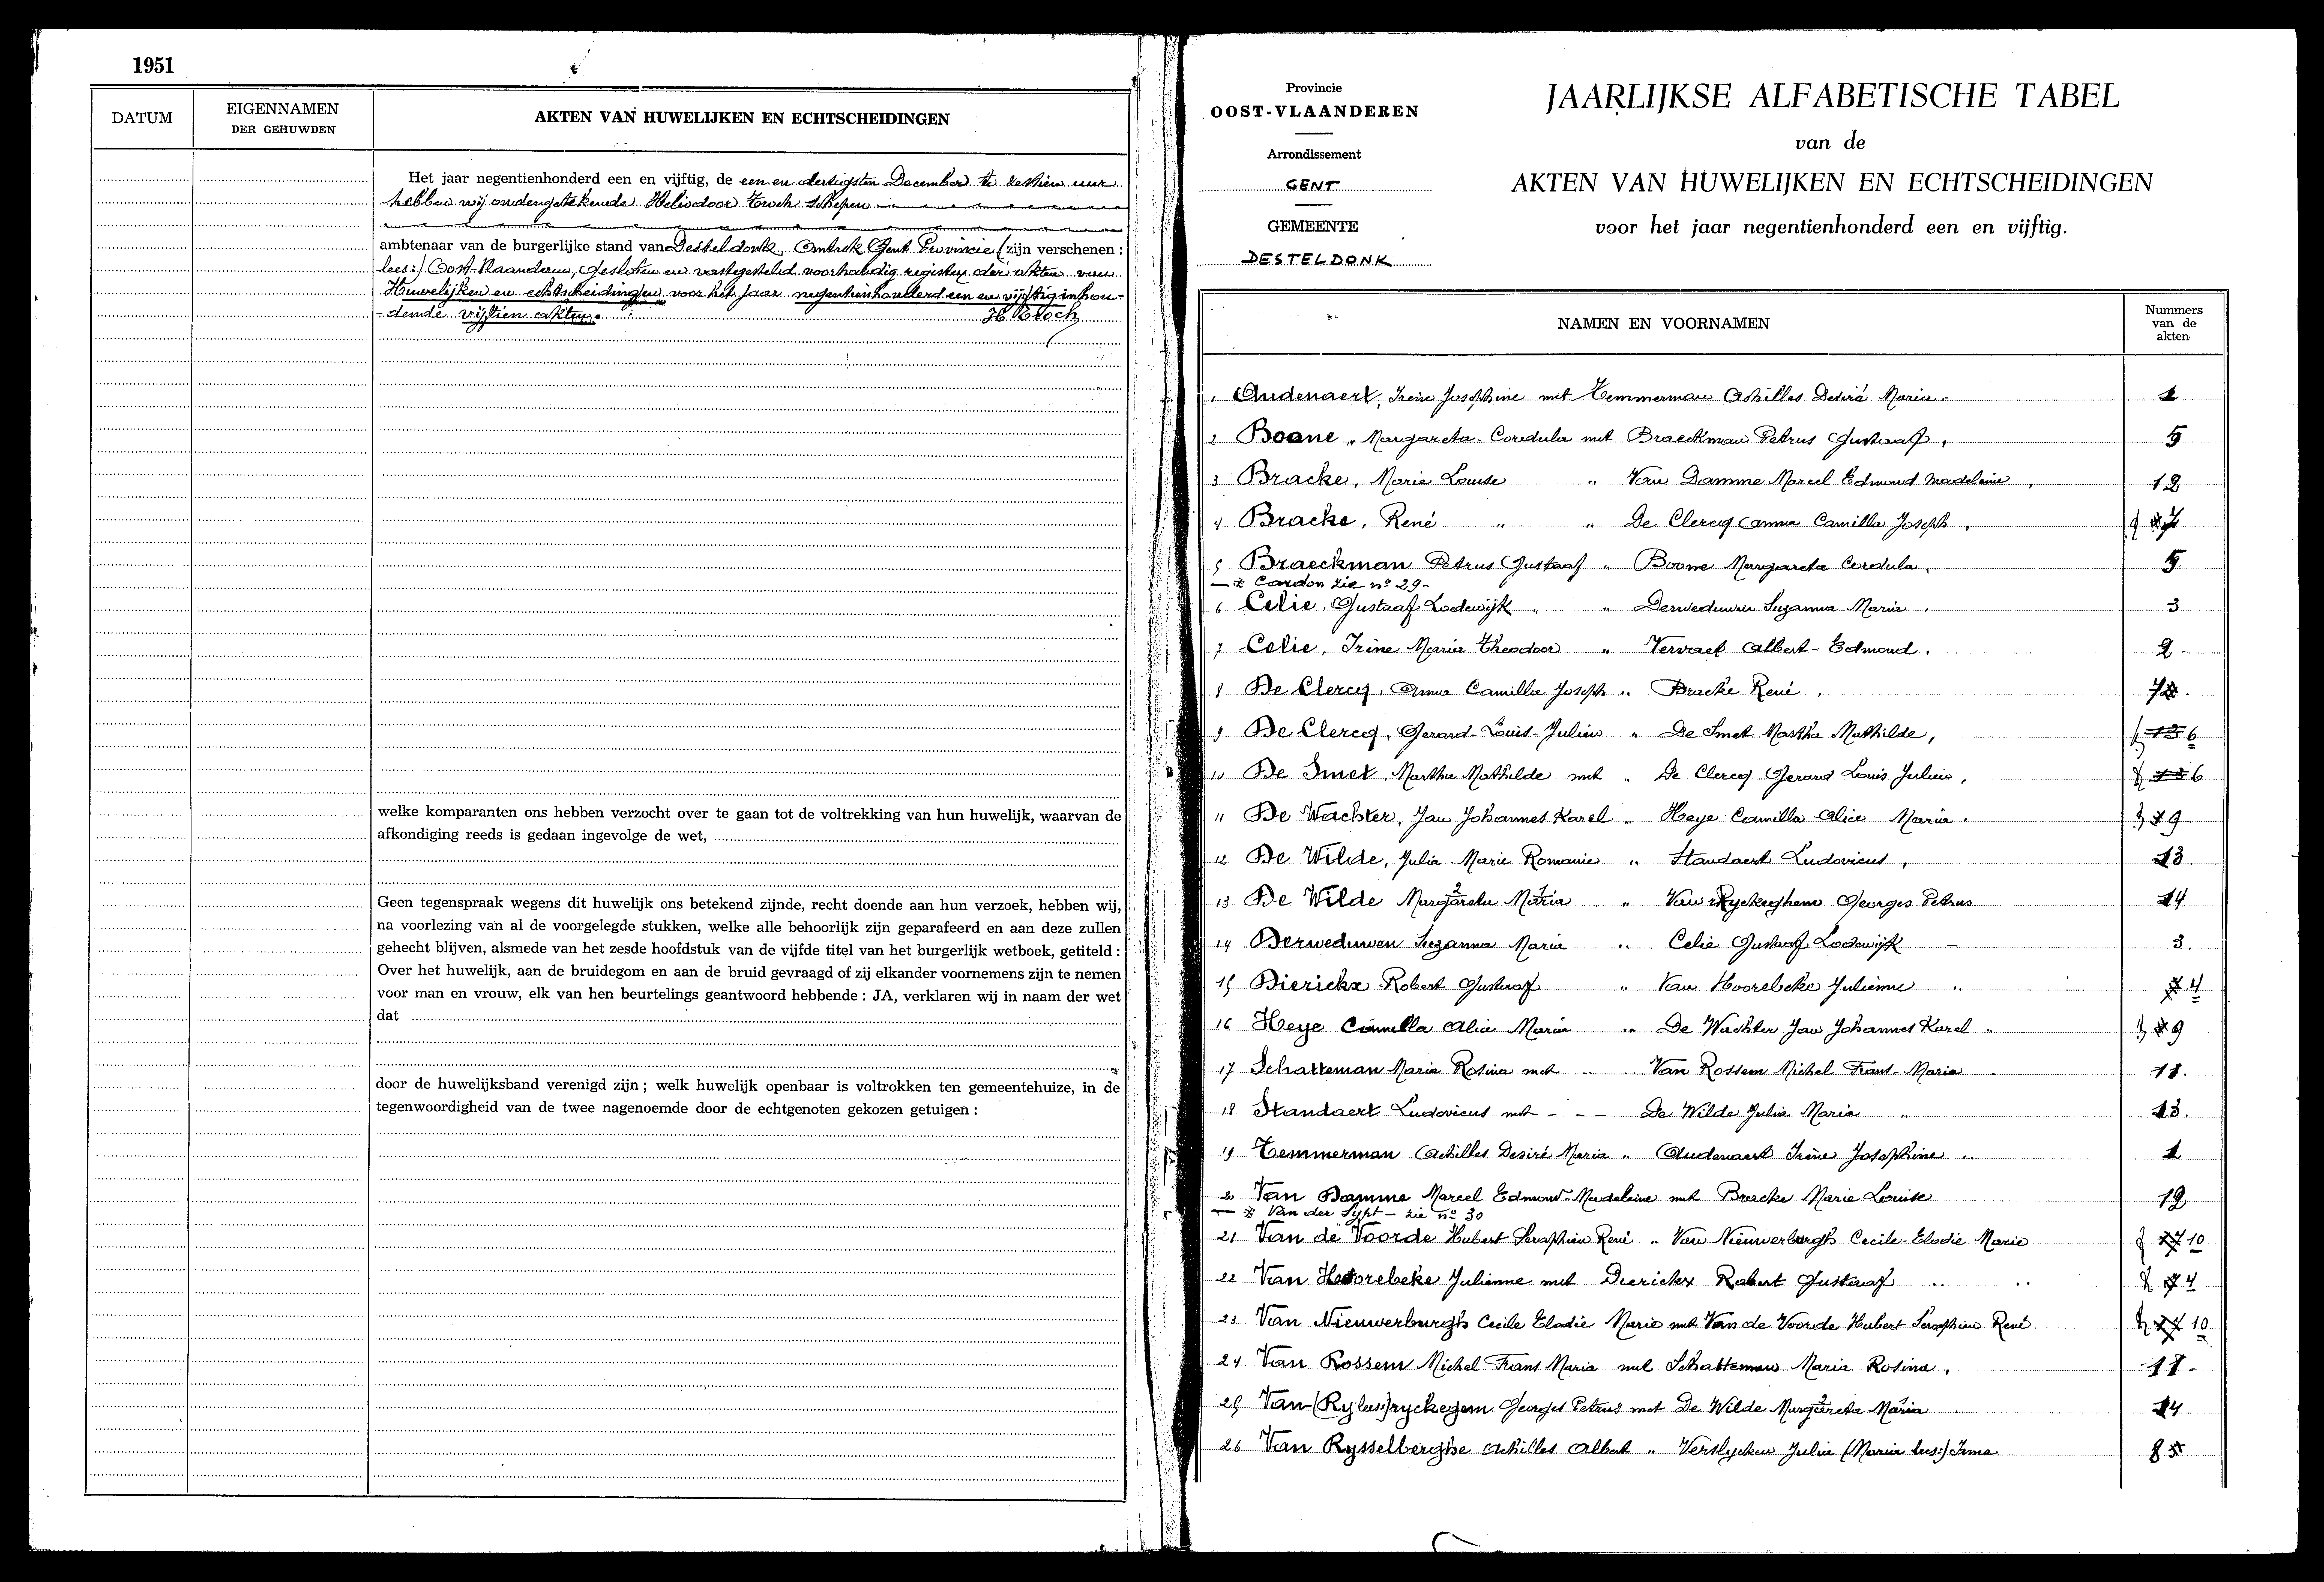 1951
DATUM
EIGENNAMEN
DER GEHUWDEN
AKTEN VAN HUWELIJKEN EN ECHTSCHEIDINGEN
Het jaar negentienhonderd een en vijftig, de een en dertigsten December te zestien uur
hebben wij ondergetekende Heliodoor Troch schepen
ambtenaar van de burgerlijke stand van Desteldonk, Omtrek Gent Provincie (zijn verschenen :
lees:) Oost-Vlaanderen, gesloten en vastgesteld voorhandig register der akten van
Huwelijken en echtscheidingen voor het jaar negentienhonderd een en vijftig inhou-
-dende vijftien akten. H. Troch
welke komparanten ons hebben verzocht over te gaan tot de voltrekking van hun huwelijk, waarvan de
afkondiging reeds is gedaan ingevolge de wet,
Geen tegenspraak wegens dit huwelijk ons betekend zijnde, recht doende aan hun verzoek, hebben wij,
na voorlezing van al de voorgelegde stukken, welke alle behoorlijk zijn geparafeerd en aan deze zullen
gehecht blijven, alsmede van het zesde hoofdstuk van de vijfde titel van het burgerlijk wetboek, getiteld :
Over het huwelijk, aan de bruidegom en aan de bruid gevraagd of zij elkander voornemens zijn te nemen
voor man en vrouw, elk van hen beurtelings geantwoord hebbende : JA, verklaren wij in naam der wet
dat
door de huwelijksband verenigd zijn ; welk huwelijk openbaar is voltrokken ten gemeentehuize, in de
tegenwoordigheid van de twee nagenoemde door de echtgenoten gekozen getuigen :
Provincie
OOST-VLAANDEREN
Arrondissement
GENT
GEMEENTE
DESTELDONK
JAARLIJKSE ALFABETISCHE TABEL
van de
AKTEN VAN HUWELIJKEN EN ECHTSCHEIDINGEN
voor het jaar negentienhonderd een en vijftig.
NAMEN EN VOORNAMEN
Nummers
van de
akten
1 Audenaert, Irene Josephine met Temmerman Achilles Desiré Maria. 1
2 Boone, Margareta-Cordula met Braeckman Petrus Gustaaf, 5
3 Bracke, Marie Louise " Van Damme Marcel Edmond Madeleine, 12
4 Bracke, René " " De Clercq Anna Camilla Joseph, 7
5 Braeckman Petrus Gustaaf " Boone Margareta Cordula, 5
— * Cardon zie n° 29-
6 Celie, Gustaaf Lodewijk " " Derweduwen Suzanna Maria, 3
7 Celie, Irène Maria Theodoor " Vervaet Albert-Edmond. 2
8 De Clercq, Anna Camilla Joseph " Bracke René, 7
9 De Clercq, Gerard-Louis-Julien " De Smet Martha Mathilde, 13 6
10 De Smet, Martha Mathilde met " De Clercq Gerard Louis Julien, 13 6
11 De Wachter, Jan Johannes Karel " Heye Camilla Alice Maria. 9
12 De Wilde, Julia Marie Romanie " Standaert Ludovicus, 13
13 De Wilde Margareta Maria " Van Ryckeghem Georges Petrus 14
14 Derweduwen Suzanna Maria " Celie Gustaaf Lodewijk - 3.
15 Dierickx Robert Gustaaf " Van Hoorebeke Julienne " 4
16 Heye Camilla Alice Maria " De Wachter Jan Johannes Karel " 9
17 Schatteman Maria Rosina met " Van Rossem Michel Frans-Maria 11.
18 Standaert Ludovicus met - - - De Wilde Julia Maria " 13.
19 Temmerman Achilles Desiré Maria " Audenaert Irène Josephine " 1
20 Van Damme Marcel Edmond-Madeleine met Bracke Marie Louise 12
— * Van der Sypt - zie n° 30
21 Van de Voorde Hubert Seraphien René " Van Nieuwerburgh Cecile-Elodie Marie 10
22 Van Hoorebeke Julienne met Dierickx Robert Gustaaf " " 4
23 Van Nieuwerburgh Cecile Elodie Marie met Van de Voorde Hubert Seraphien René 10
24 Van Rossem Michel Frans Maria met Schatteman Maria Rosina, 11-
25 Van (Ry lees:) ryckegem Georges Petrus met De Wilde Margareta Maria 14
26 Van Rysselberghe Achilles Albert " Verslycken Julia (Maria lees:) Irma 8